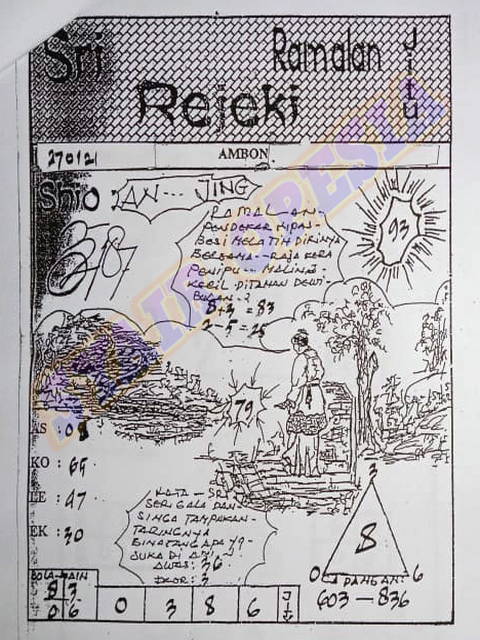 Sri
Ramalan
Jitu
Rejeki
270121
AMBON
Shio : AN--- JING
3787
93
RAMALAN-
PENDEKAR KIPAS-
BESI MELATIH DIRINYA
BERSAMA-- RAJA KERA
PENIPU-- MALING-
KECIL DITAMAN DEWI-
BULAN-?
8+3 = 83
2-5 = 25
79
AS : 08
KO : 69
LE : 47
EK : 30
KATA - SRI
SERIGALA DAN-
SINGA TAMPAKAN-
TARINGNYA
BINATANG APA YG-
SUKA DI
AWAS: 36
EKOR: 3
3
8
0
6
BOLA-MAIN
8 3
0 6
0 3 8 6
603 - 836